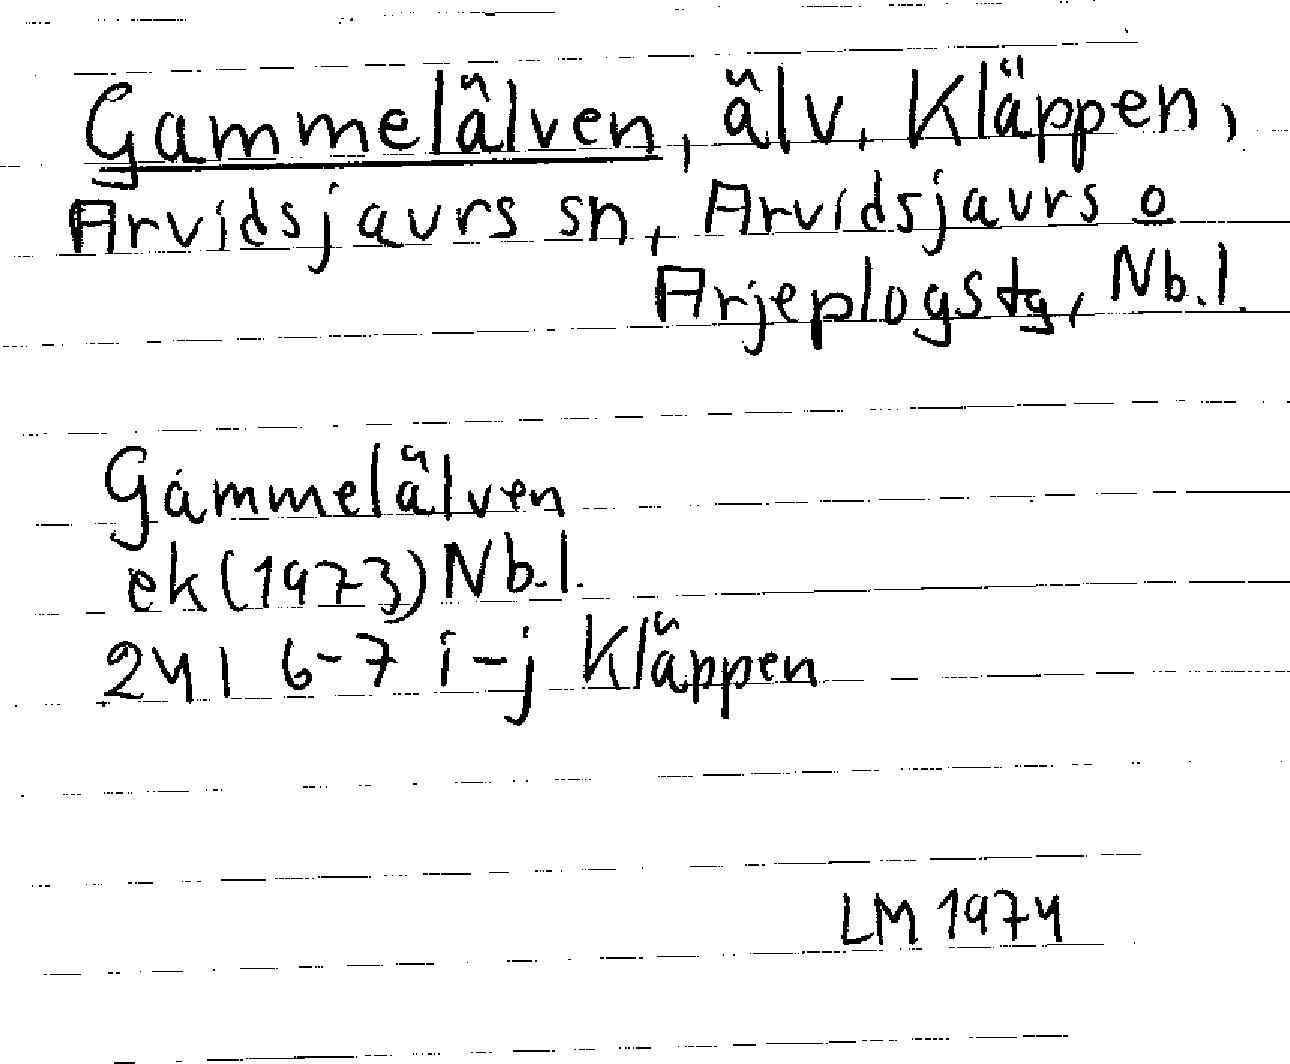 Gammelälven, älv, Kläppen,
Arvidsjaurs sn, Arvidsjaurs o
Arjeplogs tg, Nb.l.
Gammelälven
ek (1973) Nb.l.
24 I 6-7 i-j Kläppen
LM 1974